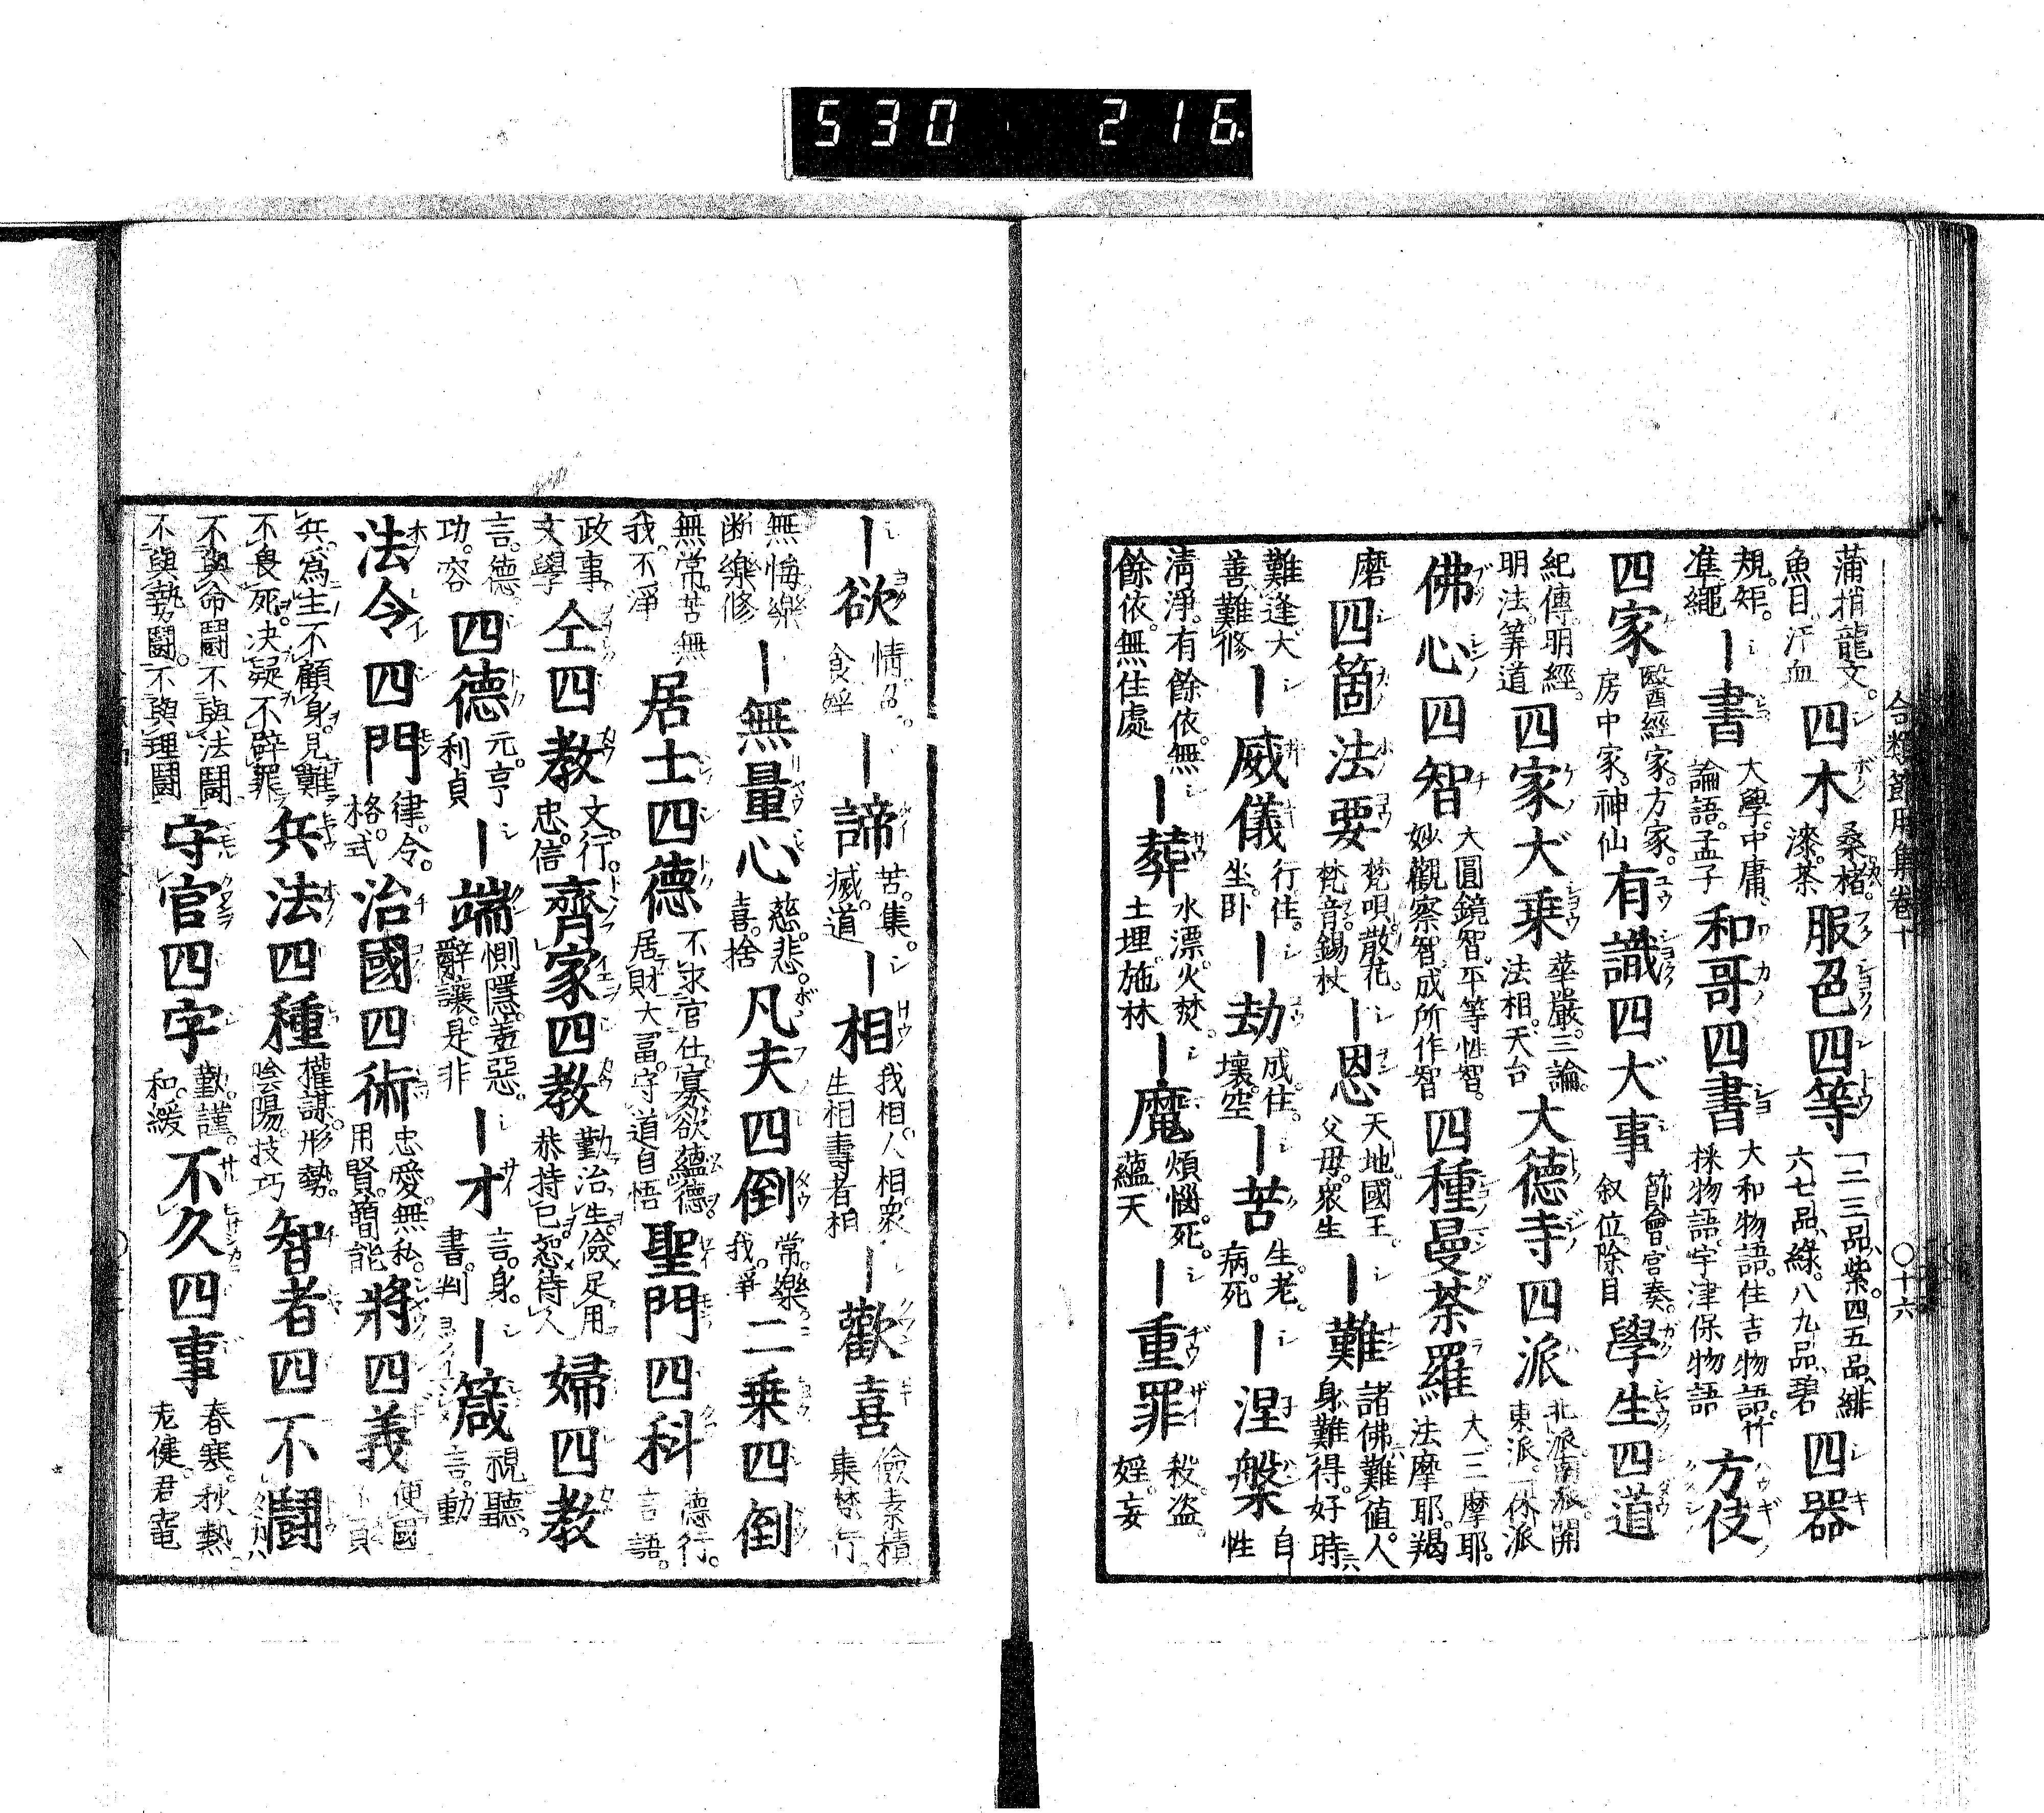 530 216.
合類節用集卷十 〇十六
蒲梢龍文。魚目。汗血 四木 桑楮。漆。茶 服色四等 一二三品紫。四五品緋 六七品綠。八九品碧 四器
規。矩。準繩 ー書 大學。中庸。論語。孟子 和哥四書 大和物語。住吉物語。竹採物語。宇津保物語 方伎
四家 醫經家。方家。房中家。神仙 有識四大事 節會。官奏。叙位。除目 學生四道
紀傳。明經。明法。筭道 四家大乗 華嚴。三論。法相。天台 大德寺四派 北派。南派。開東派。一休派
佛心四智 大圓鏡智。平等性智。妙觀察智。成所作智 四種曼荼羅 大。三摩耶。法摩耶。羯
磨 四箇法要 梵唄。散花。梵音。錫杖 ー恩 天地。國王。父母。衆生 ー難 諸佛難値。人身難得。好時
難逢。大善難修 ー威儀 行。住。坐。卧 ー劫 成。住。壞。空 ー苦 生。老。病。死 ー涅槃 自性
淸淨。有餘依。無餘依。無住處 ー葬 水漂。火焚。土埋。施林 ー魔 煩惱。死。蘊。天 ー重罪 殺。盗。婬。妄
ー欲 情。色。食。婬 ー諦 苦。集。滅。道 ー相 我相。人相。衆生相。壽者相 ー歡喜 儉素積集。梵行。
無悔樂。断樂修 ー無量心 慈。悲。喜。捨 凡夫四倒 常。樂。我。淨 二乗四倒
無常。苦。無我。不淨 居士四德 不求官仕。寡欲蘊德。居財大冨。守道自悟 聖門四科 德行。言語。
政事。文學 仝四教 文。行。忠。信 齊家四教 勤治生。儉足用。恭持已。恕待人 婦四教
言。德。功。容 四德 元。亨。利。貞 ー端 惻隱。羞惡。辭讓。是非 ー才 言。身。書。判 ー箴 視。聽。言。動
法令四門 律。令。格。式 治國四術 忠愛。無私。用賢。簡能 將四義 便國
兵。爲主不顧身。見難不畏死。决疑不辟罪 兵法四種 權謀。形勢。陰陽。技巧 智者四不鬪
不與命鬪。不與法鬪。不與勢鬪。不與理鬪 守官四字 勤。謹。和。緩 不久四事 春寒。秋熱。老健。君寵